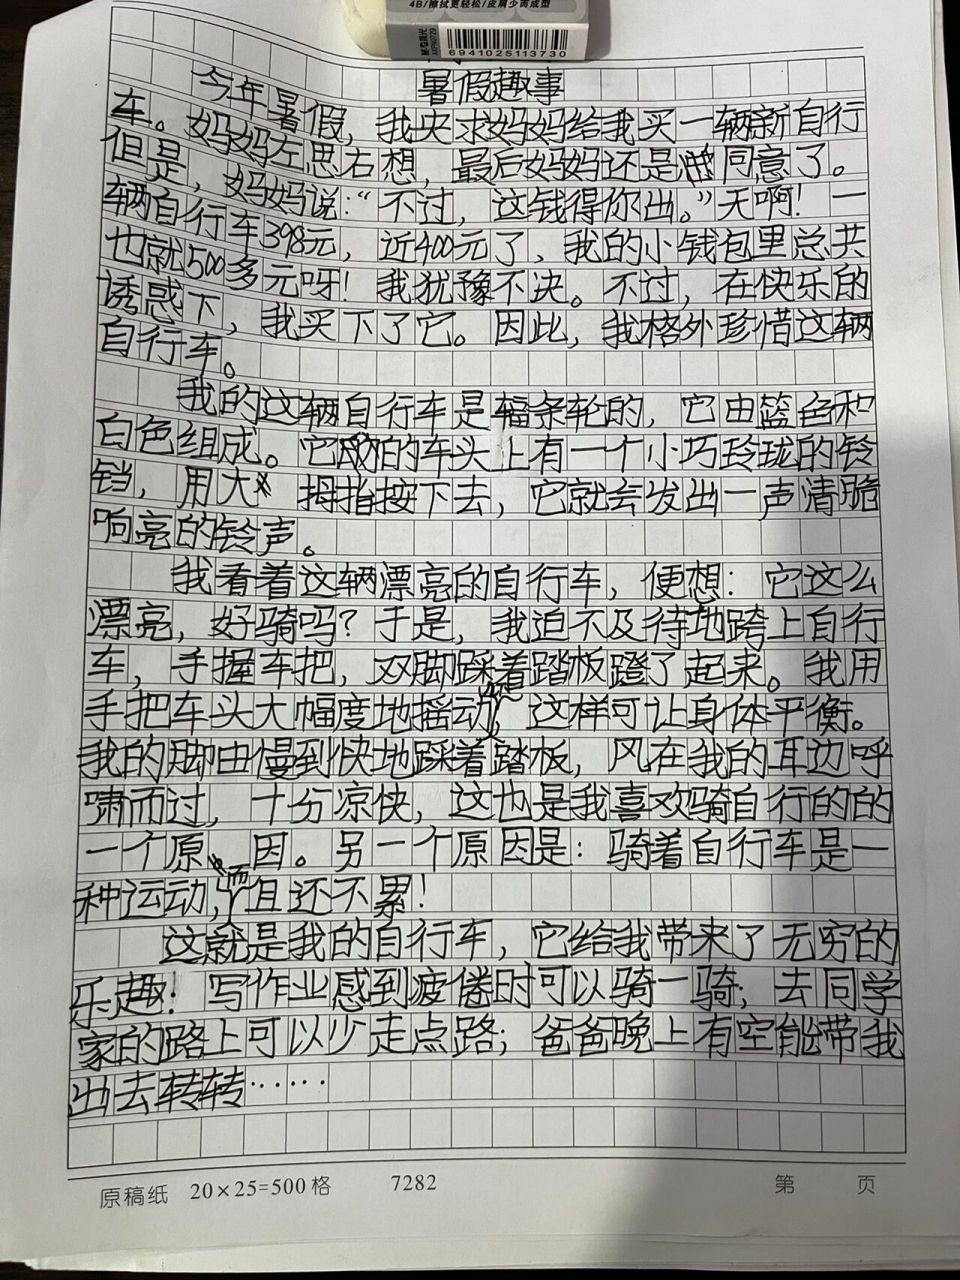 4B/擦拭更轻松/皮屑少而成型
6941025113730
暑假趣事
今年暑假，我央求妈妈给我买一辆新自行
车。妈妈左思右想，最后妈妈还是同意了。
但是，妈妈说：“不过，这钱得你出。”天啊！一
辆自行车398元，近400元了，我的小钱包里总共
也就500多元呀！我犹豫不决。不过，在快乐的
诱惑下，我买下了它。因此，我格外珍惜这辆
自行车。
我的这辆自行车是辐条轮的，它由篮色和
白色组成。它的车头上有一个小巧玲珑的铃
铛，用大拇指按下去，它就会发出一声清脆
响亮的铃声。
我看着这辆漂亮的自行车，便想：它这么
漂亮，好骑吗？于是，我迫不及待地跨上自行
车，手握车把，双脚踩着踏板蹬了起来。我用
手把车头大幅度地摇动，这样可让身体平衡。
我的脚由慢到快地踩着踏板，风在我的耳边呼
啸而过，十分凉快，这也是我喜欢骑自行的的
一个原因。另一个原因是：骑着自行车是一
种运动，而且还不累！
这就是我的自行车，它给我带来了无穷的
乐趣！写作业感到疲倦时可以骑一骑；去同学
家的路上可以少走点路；爸爸晚上有空能带我
出去转转……
原稿纸 20×25=500格 7282 第 页